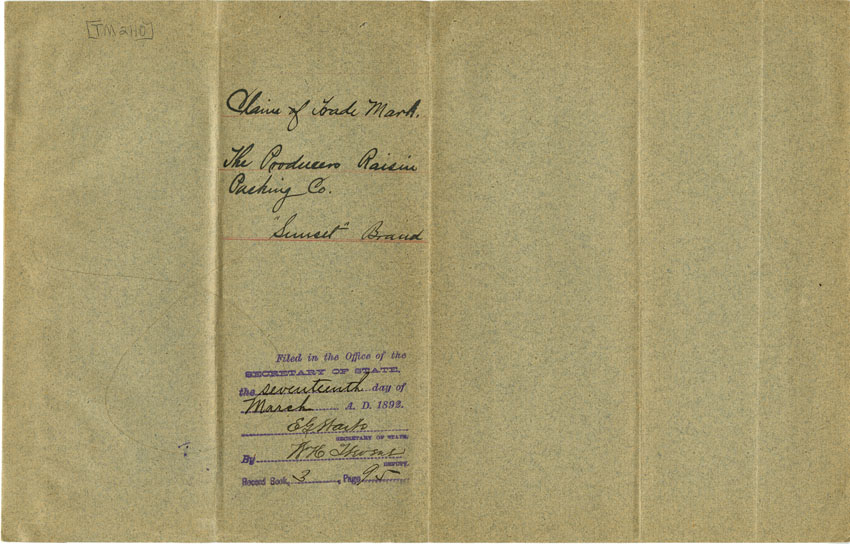 [TM 2110]
Claim of Trade Mark.
The Producers Raisin
Packing Co.
"Sunset" Brand
Filed in the Office of the
SECRETARY OF STATE,
the seventeenth day of
March A. D. 1892.
E G Waite
SECRETARY OF STATE.
By W H Thomas
DEPUTY.
Record Book, 3, Page 95